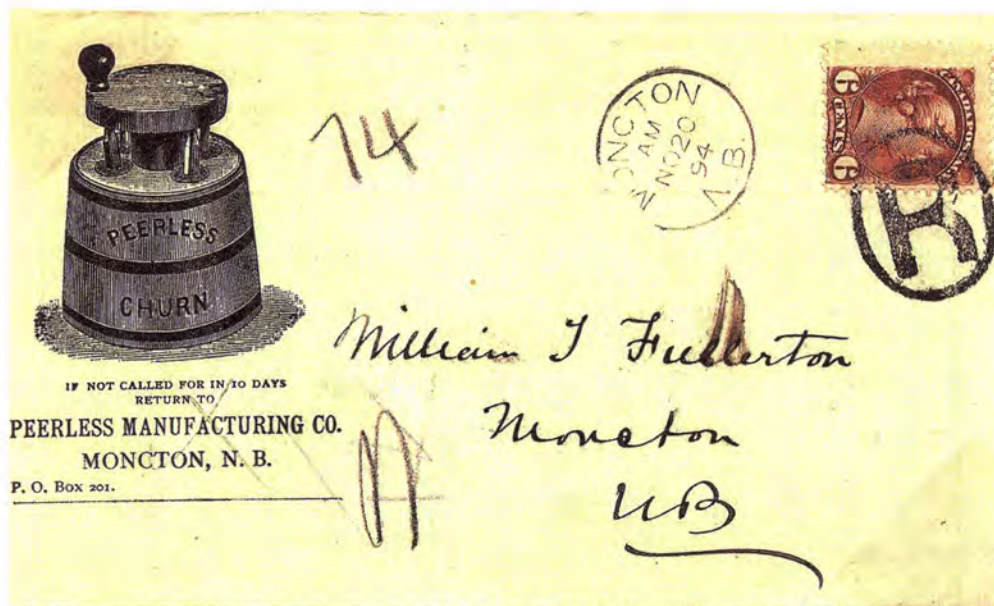 PEERLESS
CHURN
IF NOT CALLED FOR IN 10 DAYS
RETURN TO
PEERLESS MANUFACTURING CO.
MONCTON, N. B.
P. O. Box 201.
74
MONCTON
AM
NO 20
94
N. B.
SIX CENTS
6
6
R
William J Fullerton
Moncton
NB